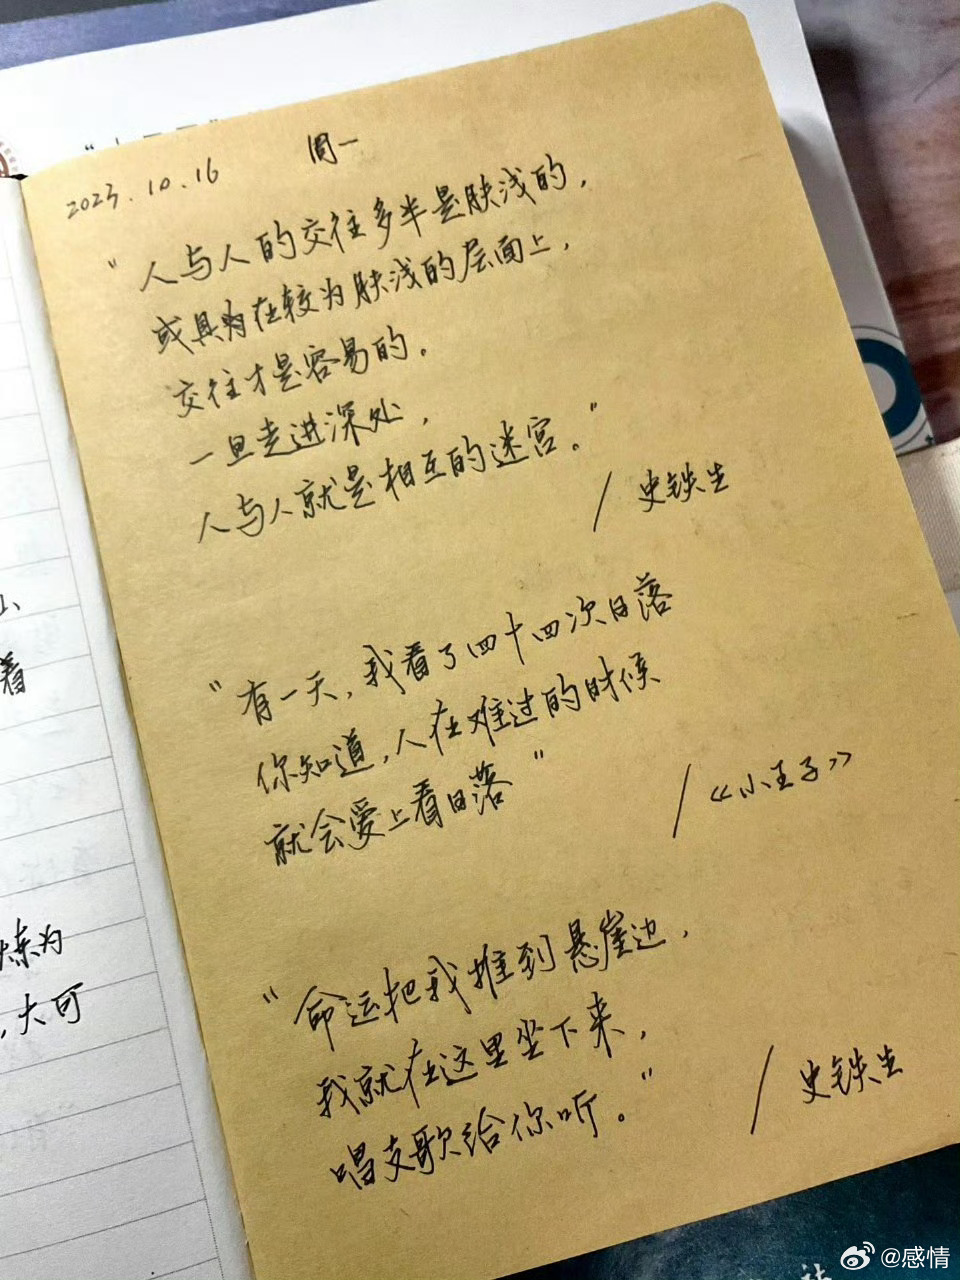 2023.10.16 周一
"人与人的交往多半是肤浅的,
或只有在较为肤浅的层面上,
交往才是容易的。
一旦走进深处,
人与人就是相互的迷宫。"
/ 史铁生
"有一天,我看了四十四次日落
你知道,人在难过的时候
就会爱上看日落"
/ 《小王子》
"命运把我推到悬崖边,
我就在这里坐下来,
唱支歌给你听。"
/ 史铁生
着
炼为
,大可
@感情